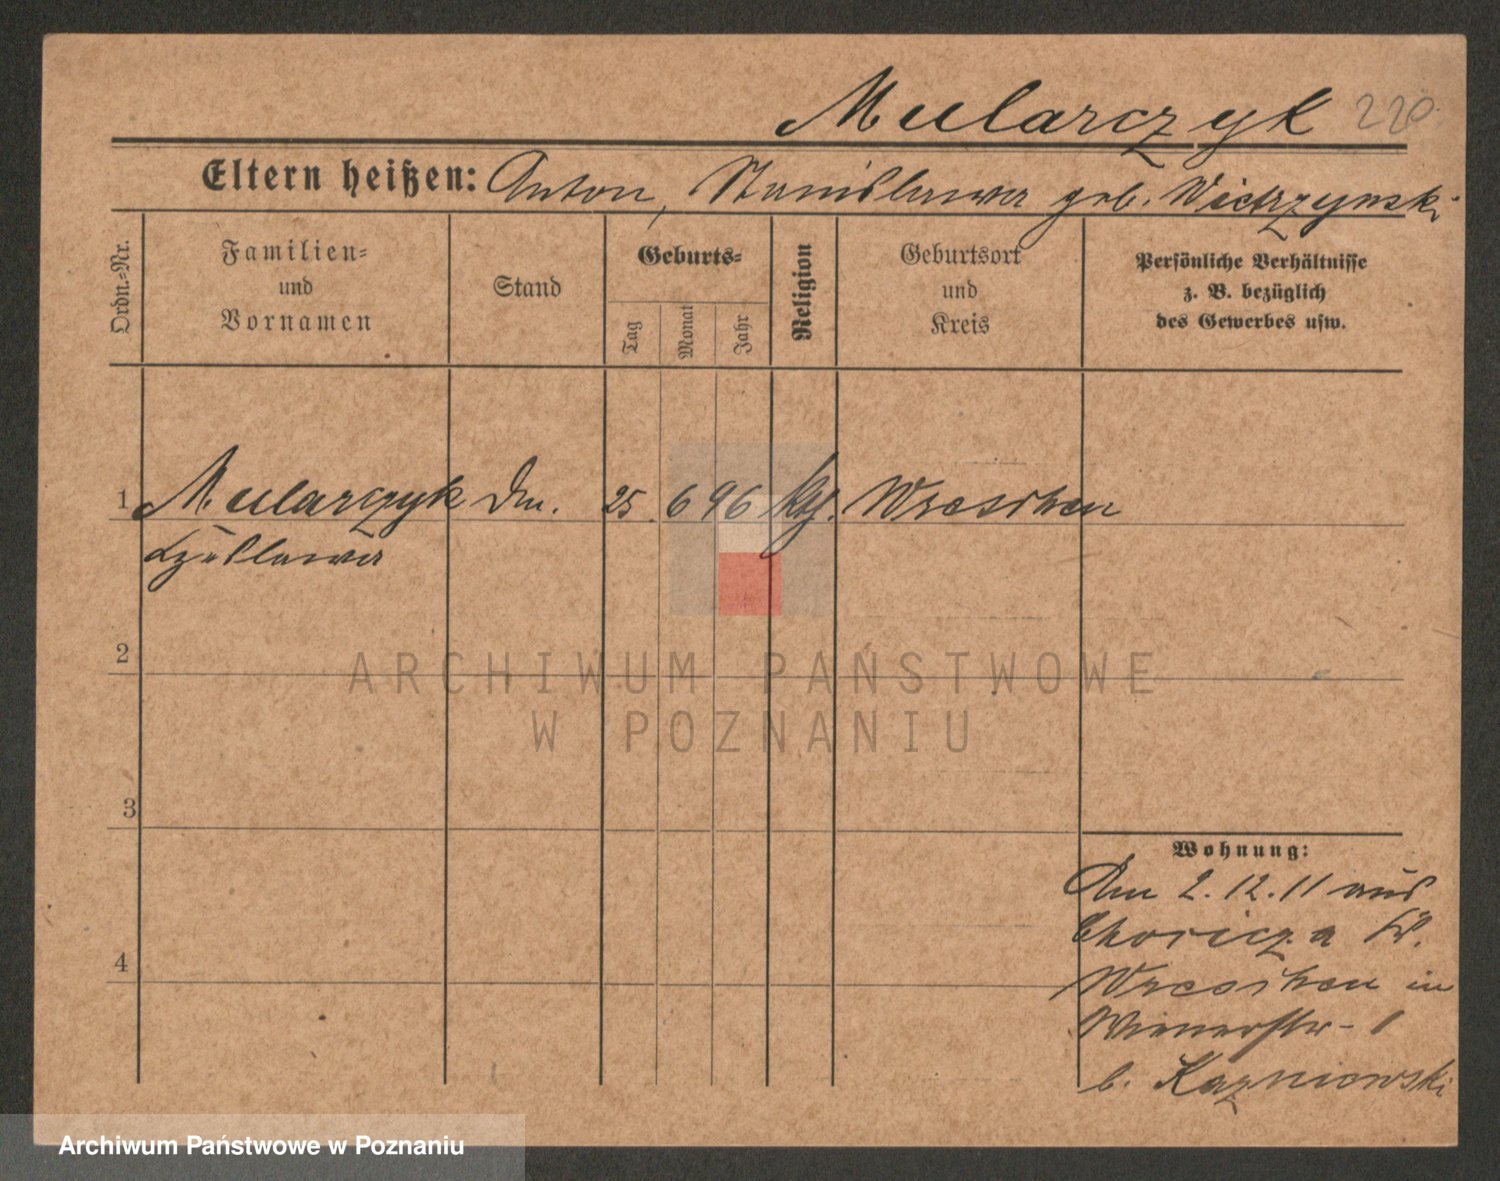 Mularczyk 220
Eltern heißen: Anton, Stanislawa geb. Wietrzynski
Ordn.-Nr.
Familien-
und
Vornamen
Stand
Geburts-
Tag
Monat
Jahr
Religion
Geburtsort
und
Kreis
Persönliche Verhältnisse
z. B. bezüglich
des Gewerbes usw.
1 Mularczyk Dm. 25. 6 96 kth. Wreschen
2
3
4
Wohnung:
Am 2.12.11 aus
Chocicza Kr.
Wreschen in
Wienerstr. 1
b. Kazniewski
ARCHIWUM PAŃSTWOWE
W POZNANIU
Archiwum Państwowe w Poznaniu